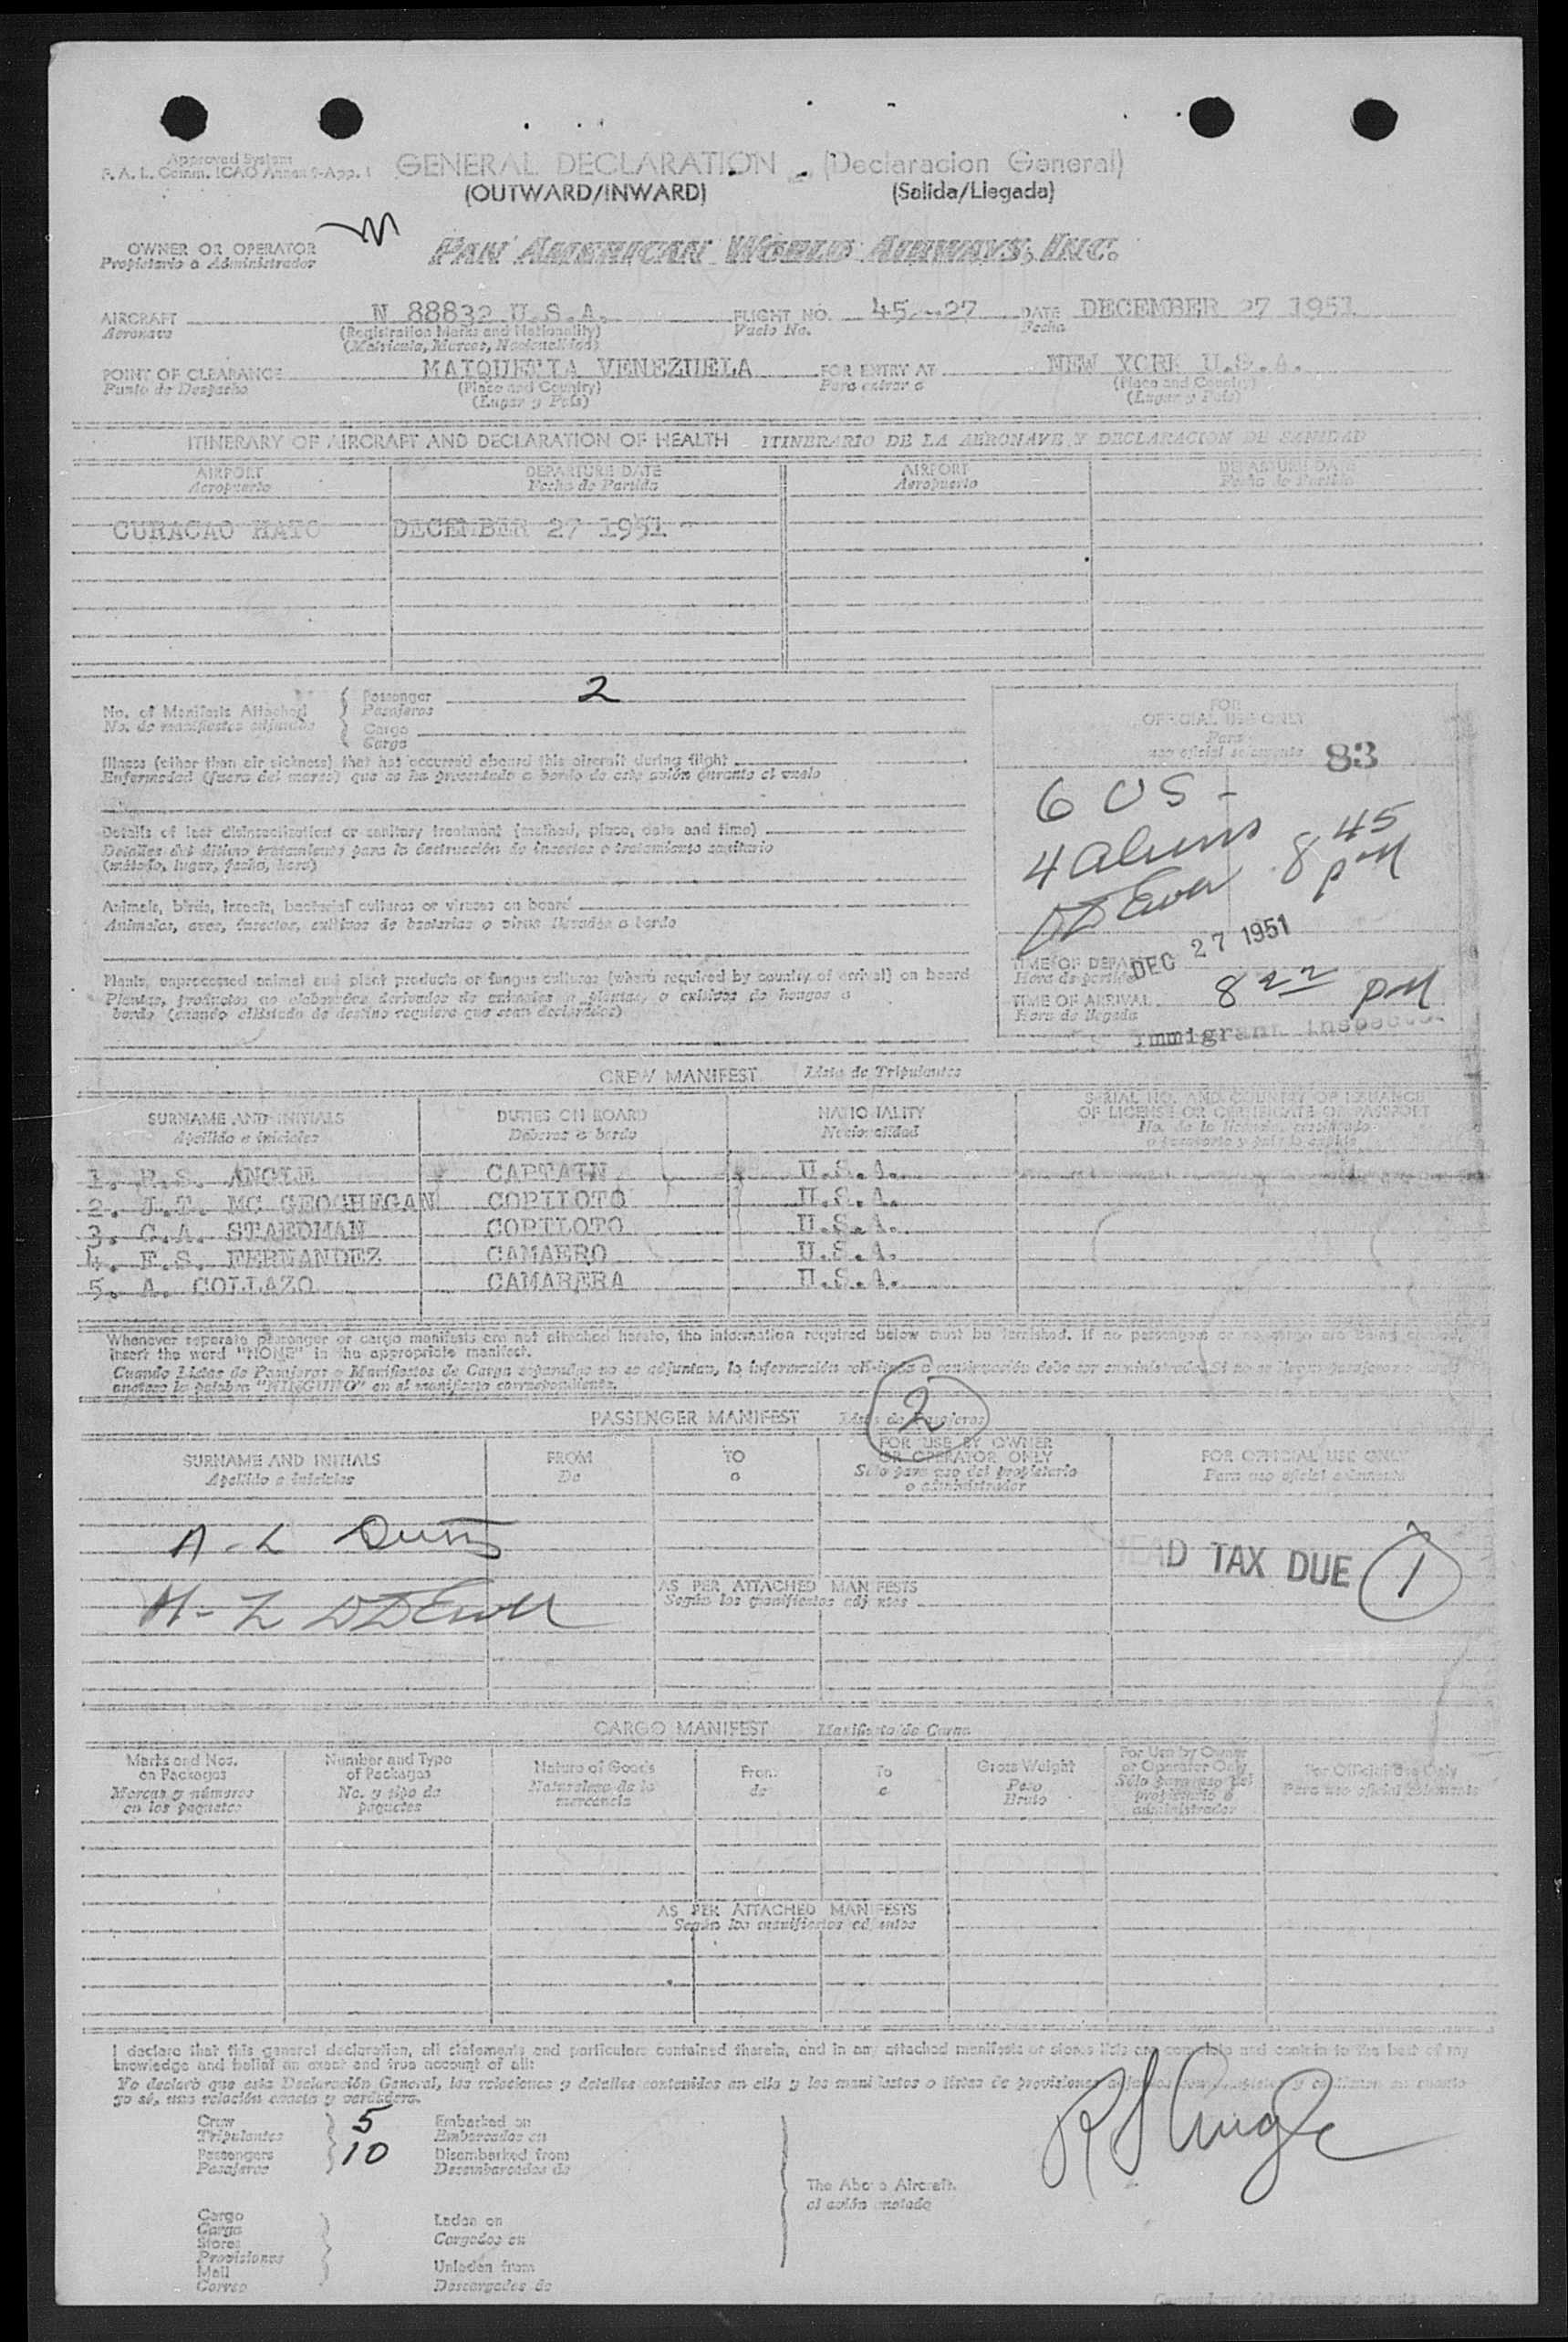 Approved System
F. A. L. Comm. ICAO Annex 9-App. 1
GENERAL DECLARATION - (Declaracion General)
(OUTWARD/INWARD) (Salida/Llegada)
OWNER OR OPERATOR
Propietario o Administrador
PAN AMERICAN WORLD AIRWAYS, INC.
AIRCRAFT N 88832 U.S.A. FLIGHT NO. 45--27 DATE DECEMBER 27 1951
Aeronave (Registration Marks and Nationality) Vuelo No. Fecha
(Matricula, Marcas, Nacionalidad)
POINT OF CLEARANCE MAIQUETIA VENEZUELA FOR ENTRY AT NEW YORK U.S.A.
Punto de Despacho (Place and Country) Para entrar a (Place and Country)
(Lugar y País) (Lugar y País)
ITINERARY OF AIRCRAFT AND DECLARATION OF HEALTH ITINERARIO DE LA AERONAVE Y DECLARACION DE SANIDAD
AIRPORT DEPARTURE DATE AIRPORT DEPARTURE DATE
Aeropuerto Fecha de Partida Aeropuerto Fecha de Partida
CURACAO HATO DECEMBER 27 1951
No. of Manifests Attached
No. de manifiestos adjuntos
Passenger 2
Pasajeros
Cargo
Carga
Illness (other than air sickness) that has occurred aboard this aircraft during flight
Enfermedad (fuera del mareo) que se ha presentado a bordo de este avión durante el vuelo
Details of last disinsectization or sanitary treatment (method, place, date and time)
Detalles del último tratamiento para la destrucción de insectos o tratamiento sanitario
(método, lugar, fecha, hora)
Animals, birds, insects, bacterial cultures or viruses on board
Animales, aves, insectos, cultivos de bacterias o virus llevados a bordo
Plants, unprocessed animal and plant products or fungus cultures (where required by country of arrival) on board
Plantas, productos no elaborados derivados de animales o plantas, o cultivos de hongos a
bordo (cuando el estado de destino requiera que sean declarados)
FOR
OFFICIAL USE ONLY
Para
uso oficial solamente
83
6 US -
4 aliens
8 45 pM
DEC 27 1951
TIME OF DEPARTURE
Hora de partida
TIME OF ARRIVAL 8 22 pM
Hora de llegada
Immigrant Inspector
CREW MANIFEST Lista de Tripulantes
SURNAME AND INITIALS DUTIES ON BOARD NATIONALITY SERIAL NO. AND COUNTRY OF ISSUANCE
OF LICENSE OR CERTIFICATE OR PASSPORT
Apellido e iniciales Deberes a bordo Nacionalidad No. de la licencia, certificado
o pasaporte y país lo expide
1. R.S. ANGLE CAPTAIN U.S.A.
2. J.T. MC GEOGHEGAN COPILOTO U.S.A.
3. C.A. STAEDMAN COPILOTO U.S.A.
4. F.S. FERNANDEZ CAMAERO U.S.A.
5. A. COLLAZO CAMARERA U.S.A.
Whenever separate passenger or cargo manifests are not attached hereto, the information required below must be furnished. If no passengers or no cargo are being carried,
insert the word "NONE" in the appropriate manifest.
Cuando Listas de Pasajeros o Manifiestos de Carga separados no se adjuntan, la información solicitada a continuación debe ser suministrada. Si no se llevan pasajeros o
anotase la palabra "NINGUNO" en el manifiesto correspondiente.
2
PASSENGER MANIFEST Lista de Pasajeros
SURNAME AND INITIALS FROM TO FOR USE BY OWNER OR OPERATOR ONLY FOR OFFICIAL USE ONLY
Apellido e iniciales De a Sólo para uso del propietario o administrador Para uso oficial solamente
A - L
HEAD TAX DUE 1
AS PER ATTACHED MANIFESTS
Según los manifiestos adjuntos
CARGO MANIFEST Manifiesto de Carga
Marks and Nos. on Packages Number and Type of Packages Nature of Goods From To Gross Weight For Use by Owner or Operator Only For Official Use Only
Marcas y números en los paquetes No. y tipo de paquetes Naturaleza de la mercancía de a Peso Bruto Sólo para uso del propietario o administrador Para uso oficial solamente
AS PER ATTACHED MANIFESTS
Según los manifiestos adjuntos
I declare that this general declaration, all statements and particulars contained therein, and in any attached manifests or stores lists are complete and contain to the best of my
knowledge and belief an exact and true account of all:
Yo declaro que esta Declaración General, las relaciones y detalles contenidos en ella y los manifiestos o listas de provisiones adjuntas son completos y contienen en cuanto
yo sé, una relación exacta y verdadera.
Crew 5 Embarked on
Tripulantes Embarcados en
Passengers 10 Disembarked from
Pasajeros Desembarcados de
R S Angle
The Above Aircraft.
el avión anotado
Cargo Laden on
Carga Cargados en
Stores
Provisiones
Mail Unladen from
Correo Descargados de